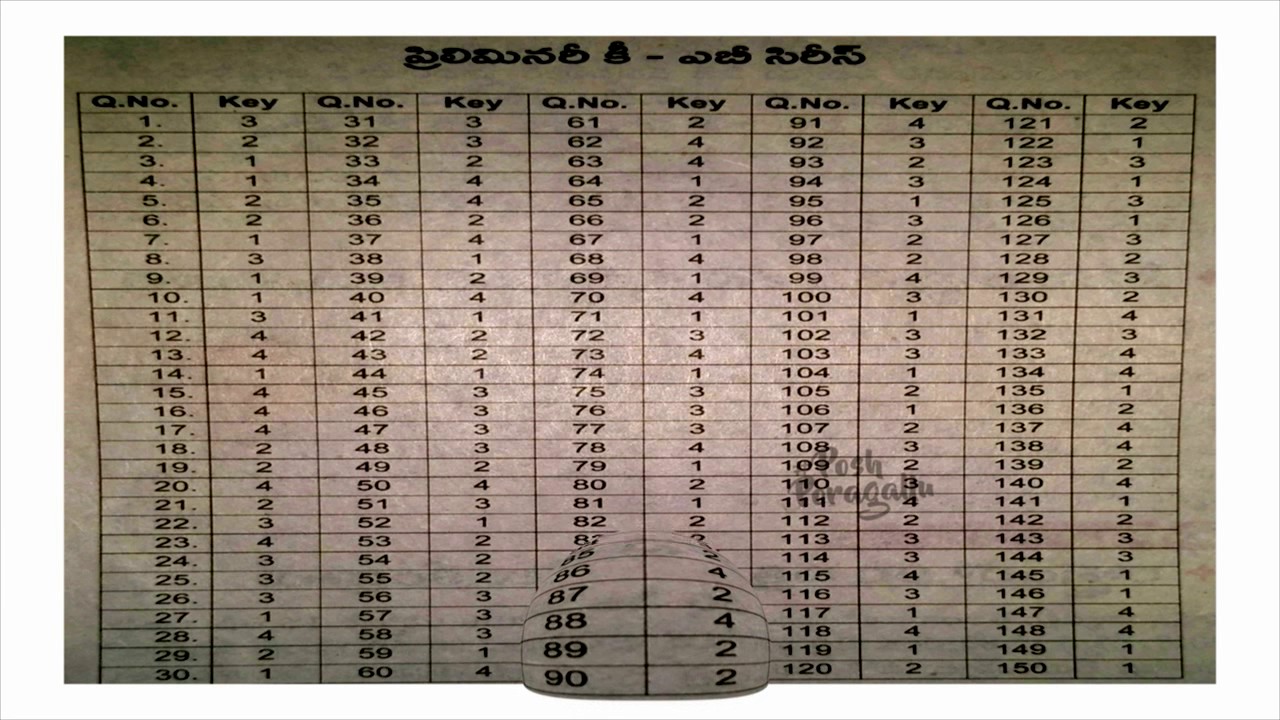 ప్రిలిమినరీ కీ – ఎబీ సిరీస్
Q.No. Key Q.No. Key Q.No. Key Q.No. Key Q.No. Key
1. 3 31 3 61 2 91 4 121 2
2. 2 32 3 62 4 92 3 122 1
3. 1 33 2 63 4 93 2 123 3
4. 1 34 4 64 1 94 3 124 1
5. 2 35 4 65 2 95 1 125 3
6. 2 36 2 66 2 96 3 126 1
7. 1 37 4 67 1 97 2 127 3
8. 3 38 1 68 4 98 2 128 2
9. 1 39 2 69 1 99 4 129 3
10. 1 40 4 70 4 100 3 130 2
11. 3 41 1 71 1 101 1 131 4
12. 4 42 2 72 3 102 3 132 3
13. 4 43 2 73 4 103 3 133 4
14. 1 44 1 74 1 104 1 134 4
15. 4 45 3 75 3 105 2 135 1
16. 4 46 3 76 3 106 1 136 2
17. 4 47 3 77 3 107 2 137 4
18. 2 48 3 78 4 108 3 138 4
19. 2 49 2 79 1 109 2 139 2
20. 4 50 4 80 2 110 3 140 4
21. 2 51 3 81 1 111 4 141 1
22. 3 52 1 82 2 112 2 142 2
23. 4 53 2 113 3 143 3
24. 3 54 2 114 3 144 3
25. 3 55 2 86 4 115 4 145 1
26. 3 56 3 87 2 116 3 146 1
27. 1 57 3 88 4 117 1 147 4
28. 4 58 3 89 2 118 4 148 4
29. 2 59 1 90 2 119 1 149 1
30. 1 60 4 120 2 150 1
Posh
Poragallu